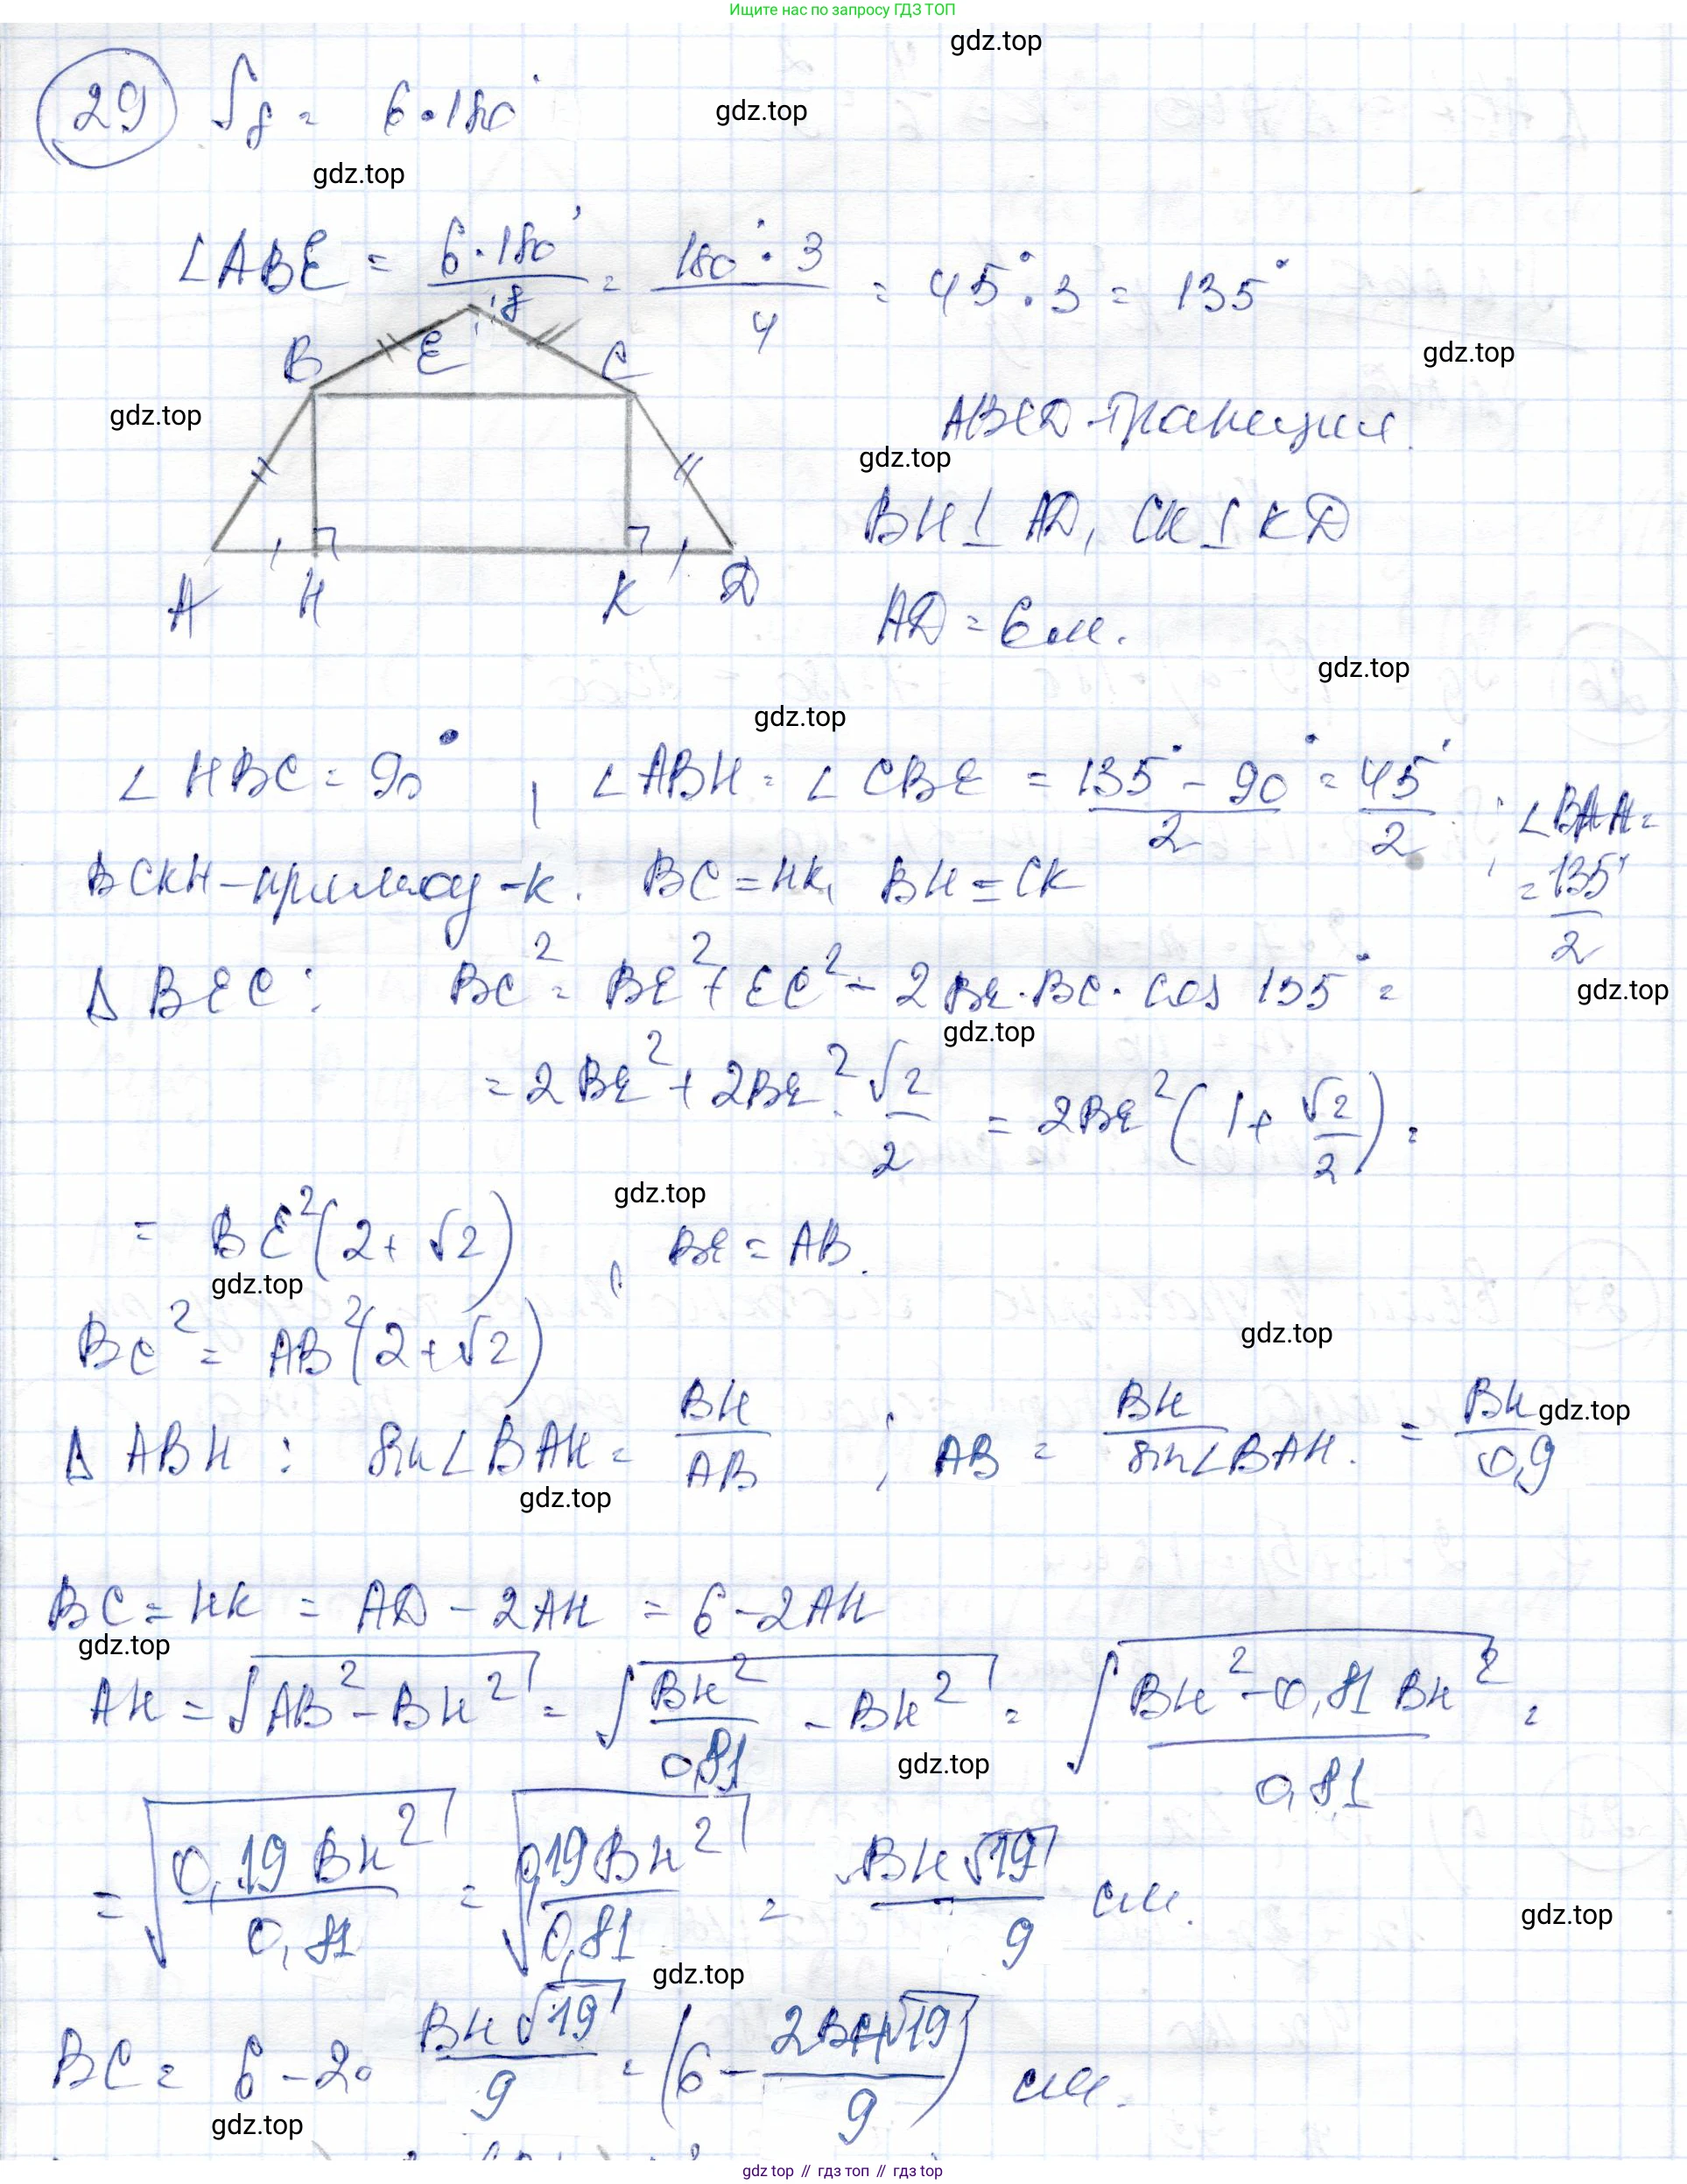 Ищите нас по запросу ГДЗ ТОП
gdz.top
29 S₈ = 6·180°
gdz.top
gdz.top
∠ABE = 6·180°/8 = 180°·3/4 = 45°·3 = 135°
B E C
gdz.top
gdz.top
ABCD - трапеция.
gdz.top
BH ⊥ AD, CK ⊥ KD
A H K D
AD = 6 см.
gdz.top
gdz.top
∠HBC = 90°, ∠ABH = ∠CBE = 135° - 90°/2 = 45°/2 ; ∠BAH =
BCKH - прямоуг-к. BC = HK, BH = CK
= 135°/2
△BEC: BC² = BE² + EC² - 2BE·BC·cos 135° =
gdz.top
gdz.top
= 2BE² + 2BE²·√2/2 = 2BE²(1 + √2/2) =
gdz.top
= BE²(2 + √2), BE = AB.
gdz.top
BC² = AB²(2 + √2)
gdz.top
△ABH: sin∠BAH = BH/AB ; AB = BH/sin∠BAH. = BH/0,9
gdz.top
gdz.top
BC = HK = AD - 2AH = 6 - 2AH
gdz.top
AH = √(AB² - BH²) = √(BH²/0,81 - BH²) = √(BH² - 0,81 BH²/0,81) =
gdz.top
= √(0,19 BH²/0,81) = √(0,19 BH²/0,81) = BH√19/9 см.
gdz.top
gdz.top
BC = 6 - 2· BH√19/9 = (6 - 2BH√19/9) см.
gdz.top
gdz top // гдз топ // гдз top